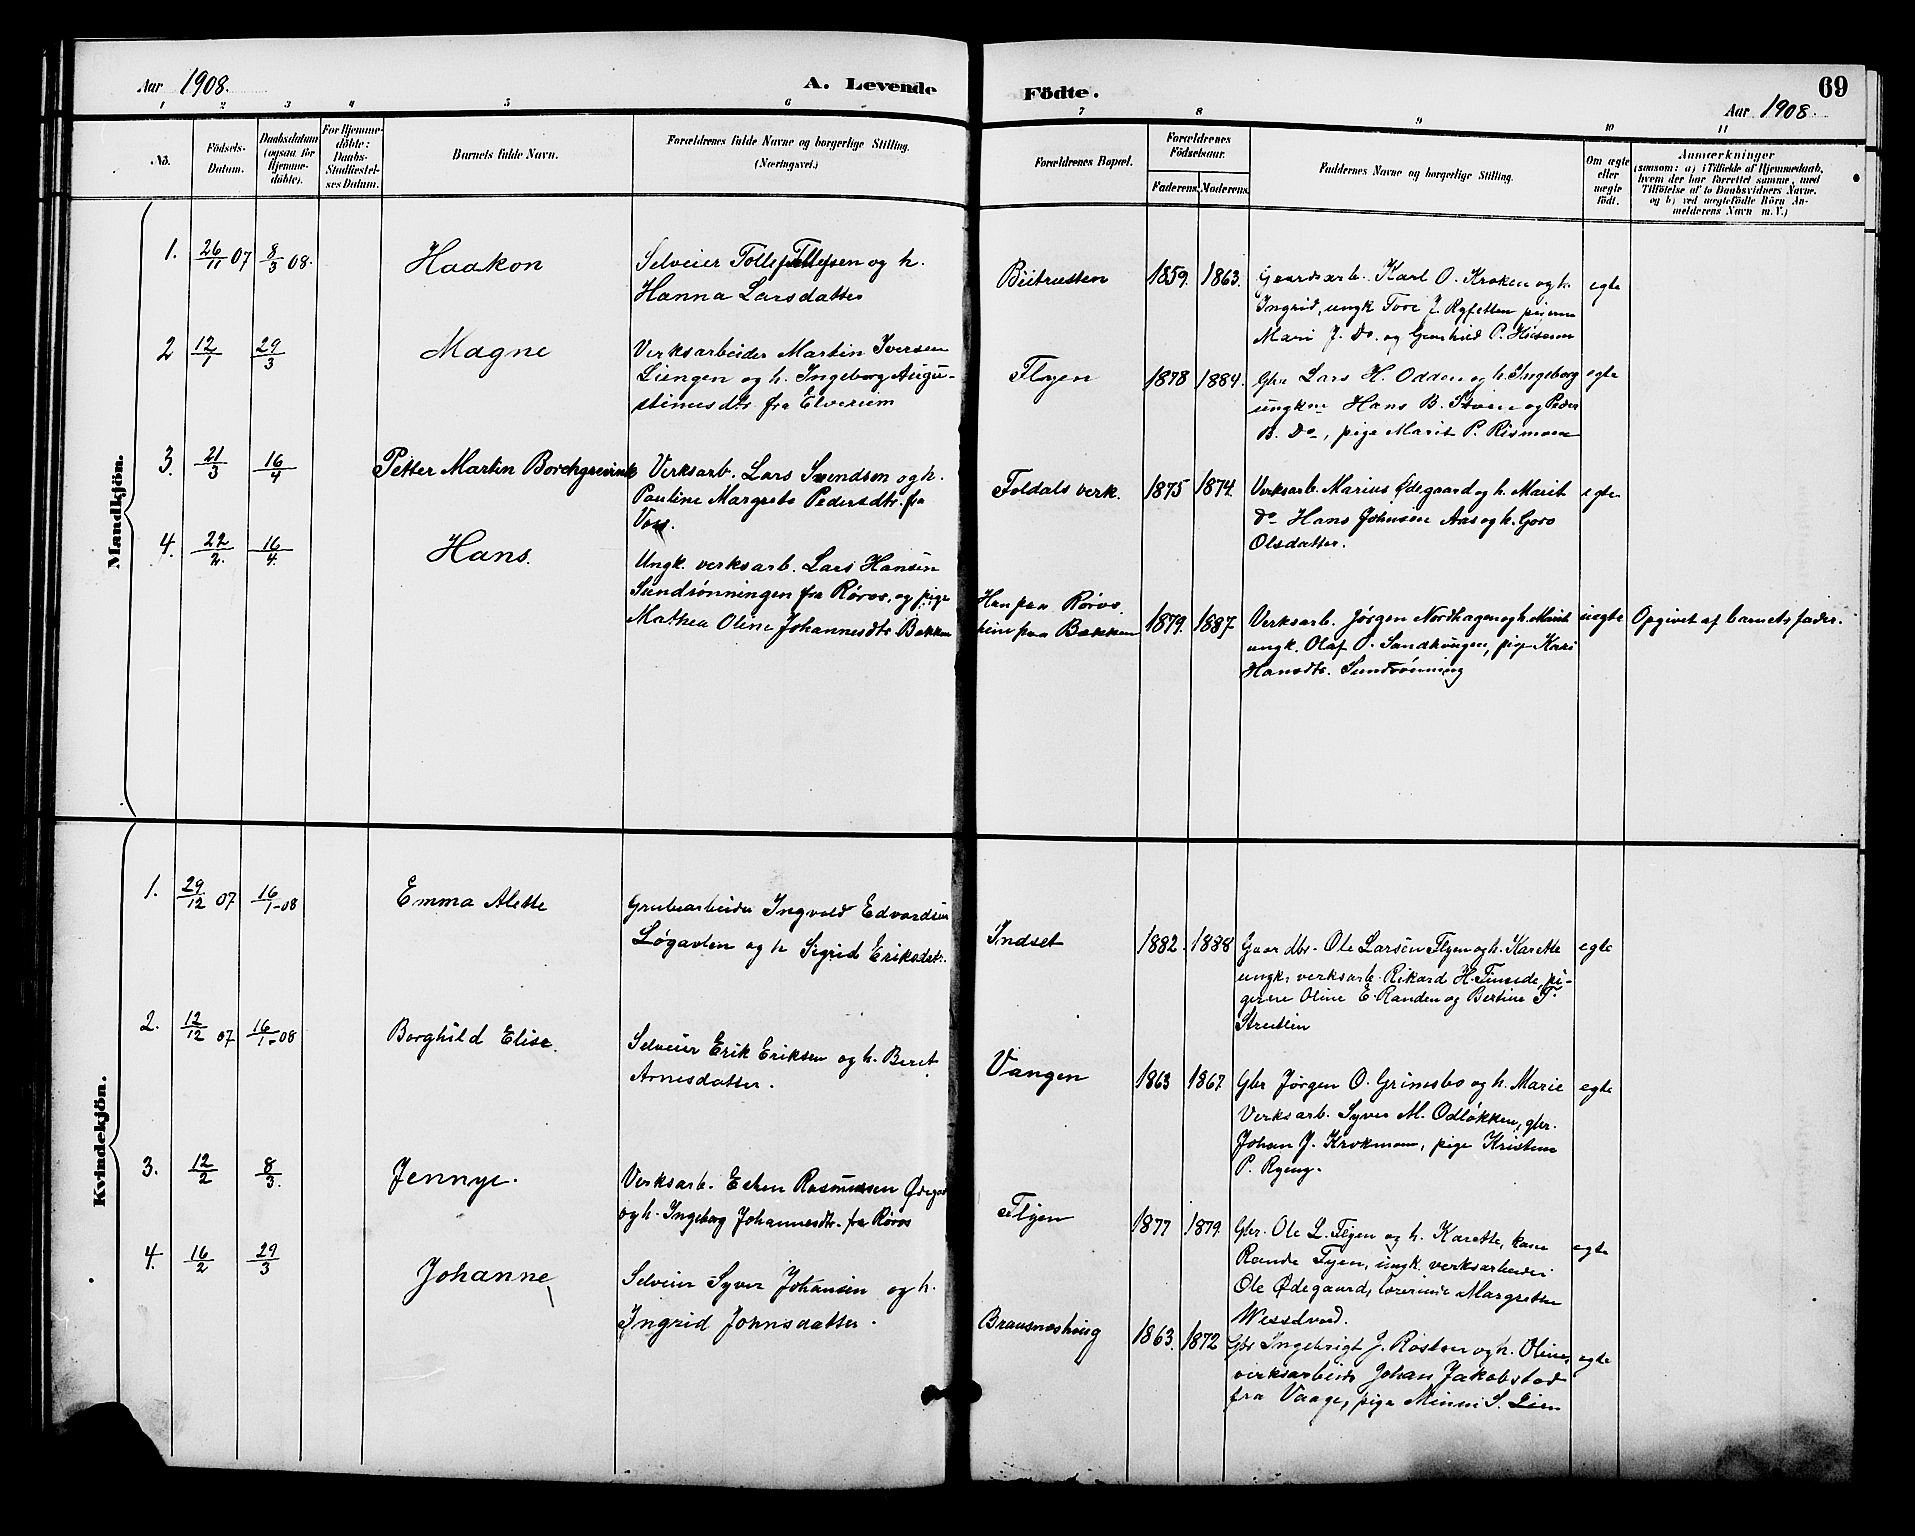 Aar 1908.
A. Levende
Födte.
69
Aar 1908.
1 2 3 4 5 6 7 8 9 10 11
No.
Födsels-
Datum.
Daabsdatum
(ogsaa for
Hjemme-
döbte).
For Hjemme-
döbte:
Daabs-
Stadfæstel-
ses Datum.
Barnets fulde Navn.
Forældrenes fulde Navne og borgerlige Stilling.
(Næringsvei.)
Forældrenes Bopæl.
Forældrenes
Födselsaar.
Faderens. Moderens.
Faddernes Navne og borgerlige Stilling.
Om ægte
eller
uægte
födt.
Anmærkninger
(saasom: a) i Tilfælde af Hjemmedaab,
hvem der har forrettet samme, med
Tilföielse af to Daabsvidners Navne,
og b) ved uægtefödte Börn An-
melderens Navn m. V.)
Mandkjön.
1. 26/11 07 8/3 08.
Haakon
Selveier Tollef Tollefsen og h.
Hanna Larsdatter
1859. 1863.
Gaardsarb. Karl O. Kroken og h.
Ingrid, ungk Tore J. Ryfetten
Mari J. Do. og Gunhild P.
egte
2 12/1 29/3
Magne
Verksarbeider Martin Iversen
Liengen og h. Ingeborg Augu-
stinusdtr fra Elverum
Flyen
1878 1884.
Gbr Lars H. Odden og h. Ingeborg
ungkm Hans B. Stoen og Peder
B. Do, pige Marit P. Rismoen
egte
3. 21/3 16/4
Petter Martin Borchgrevink
Verksarb. Lars Svendsen og h.
Pauline Margrete Pedersdtr. fra
Voss.
Foldals verk.
1875 1874.
Verksarb. Marius Ødegaard og h. Marit
Do Hans Johnsen Aas og h. Goro
Olsdatter.
egte
4. 22/2. 16/4.
Hans.
Ungk. verksarb. Lars Hansen
Sundrønningen fra Røros, og pige
Mathea Oline Johannesdtr Bakken
Han paa Røros.
hun paa Bakken
1879. 1887.
Verksarb. Jørgen Nordhagen og h. Marit
ungk. Olaf O. Sandhaugen, pige Kari
Hansdtr. Sundrønning
uegte
Opgivet af barnets fader.
Kvindekjön.
1. 29/12 07 16/1-08
Emma Alette
Grubearbeider Ingvald Edvardsen
Løgavlen og h Sigrid Eriksdatr.
Indset
1882. 1888
Gaardbr. Ole Larsen Flyen og h. Karette
ungk. verksarb. Rikard H. pi-
gerne Oline E. Randen og Bertine F.
Streitlien
egte
2. 12/12 07 16/1-08
Borghild Elise.
Selveier Erik Eriksen og h. Beret
Arnesdatter.
Vangen
1863 1867.
Gbr Jørgen O. Grimsbo og h. Marie
Verksarb. Syver M. Odløkken, gbr.
Johan J. Krokmoen, pige Kristine
P. Ryeng.
egte
3. 12/2 8/3.
Jennye.
Verksarb. Esten Rasmussen Ødegrd
og h. Ingeborg Johannesdtr. fra Røros
Flyen
1877 1879.
Gbr. Ole L. Flyen og h. Karette, kone
Rande Flyen, ungk. verksarbeider
Ole Ødegaard, lærerinde Margrethe
Wessdvold.
egte
4. 16/2 29/3
Johanne
Selveier Syver Johansen og h.
Ingrid Johnsdatter.
Brænsneshaug
1863. 1872
Gbr Ingebrigt J. Rosten og h. Oline,
verksarbeider Johan Jakobstad
fra Vaage, pige Minni S. Lien
egte